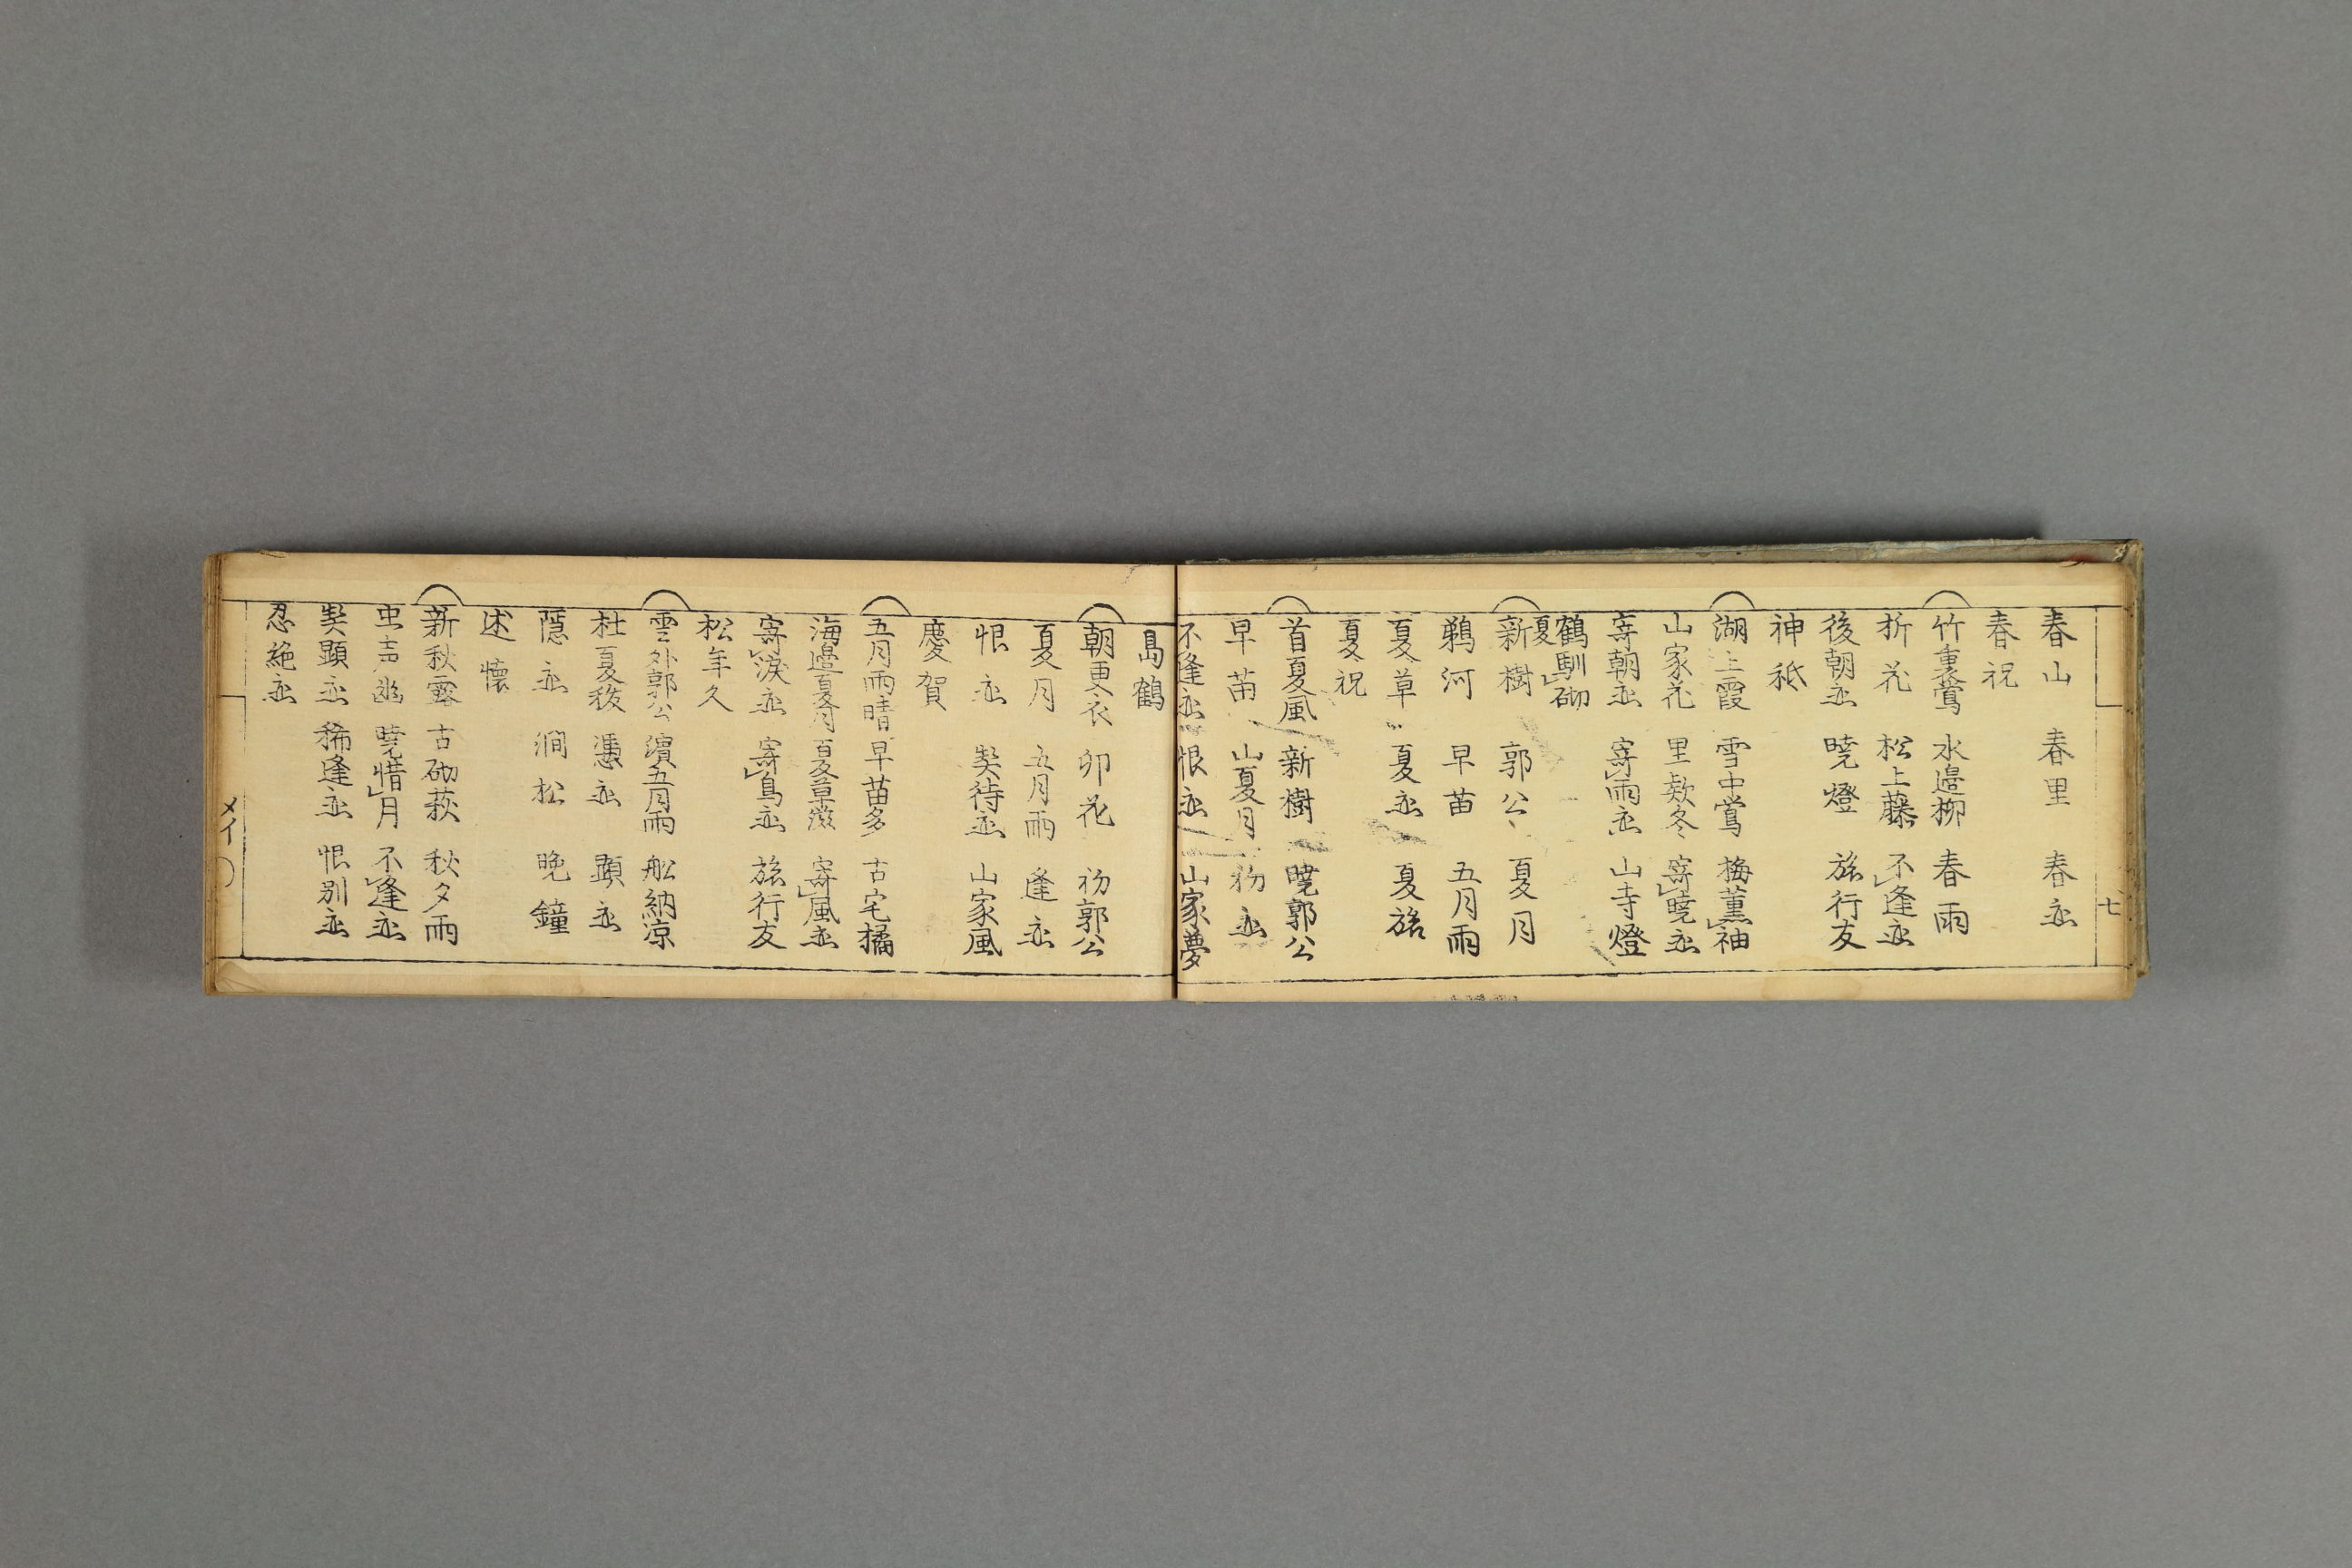 七
春山 春里 春恋
春祝
竹裏鶯 水邉柳 春雨
折花 松上藤 不逢恋
後朝恋 暁燈 旅行友
神祇
湖上霞 雪中鴬 梅薫袖
山家花 里欵冬 寄暁恋
寄朝恋 寄雨恋 山寺燈
鶴馴砌
夏
新樹 郭公 夏月
鵜河 早苗 五月雨
夏草 夏恋 夏旅
夏祝
首夏風 新樹 暁郭公
早苗 山夏月 初恋
不逢恋 恨恋 山家夢
島鶴
朝更衣 卯花 初郭公
夏月 五月雨 逢恋
恨恋 契待恋 山家風
慶賀
五月雨晴 早苗多 古宅橘
海邉夏月 夏草滋 寄風恋
寄涙恋 寄鳥恋 旅行友
松年久
雲外郭公 濱五月雨 船納凉
杜夏秡 憑恋 顕恋
隠恋 澗松 晩鐘
述懐
新秋露 古砌萩 秋夕雨
虫声幽 暁惜月 不逢恋
契顕恋 稀逢恋 恨別恋
忍絶恋
メイ